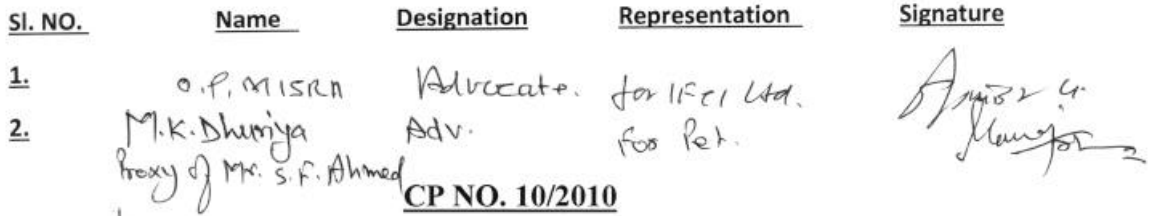 Sl. NO. Name Designation Representation Signature
1. O.P. MISRA Advocate. for IFCI Ltd.
2. M.K. Dhuriya Adv. For Pet.
Proxy of Mr. S.F. Ahmed
CP NO. 10/2010